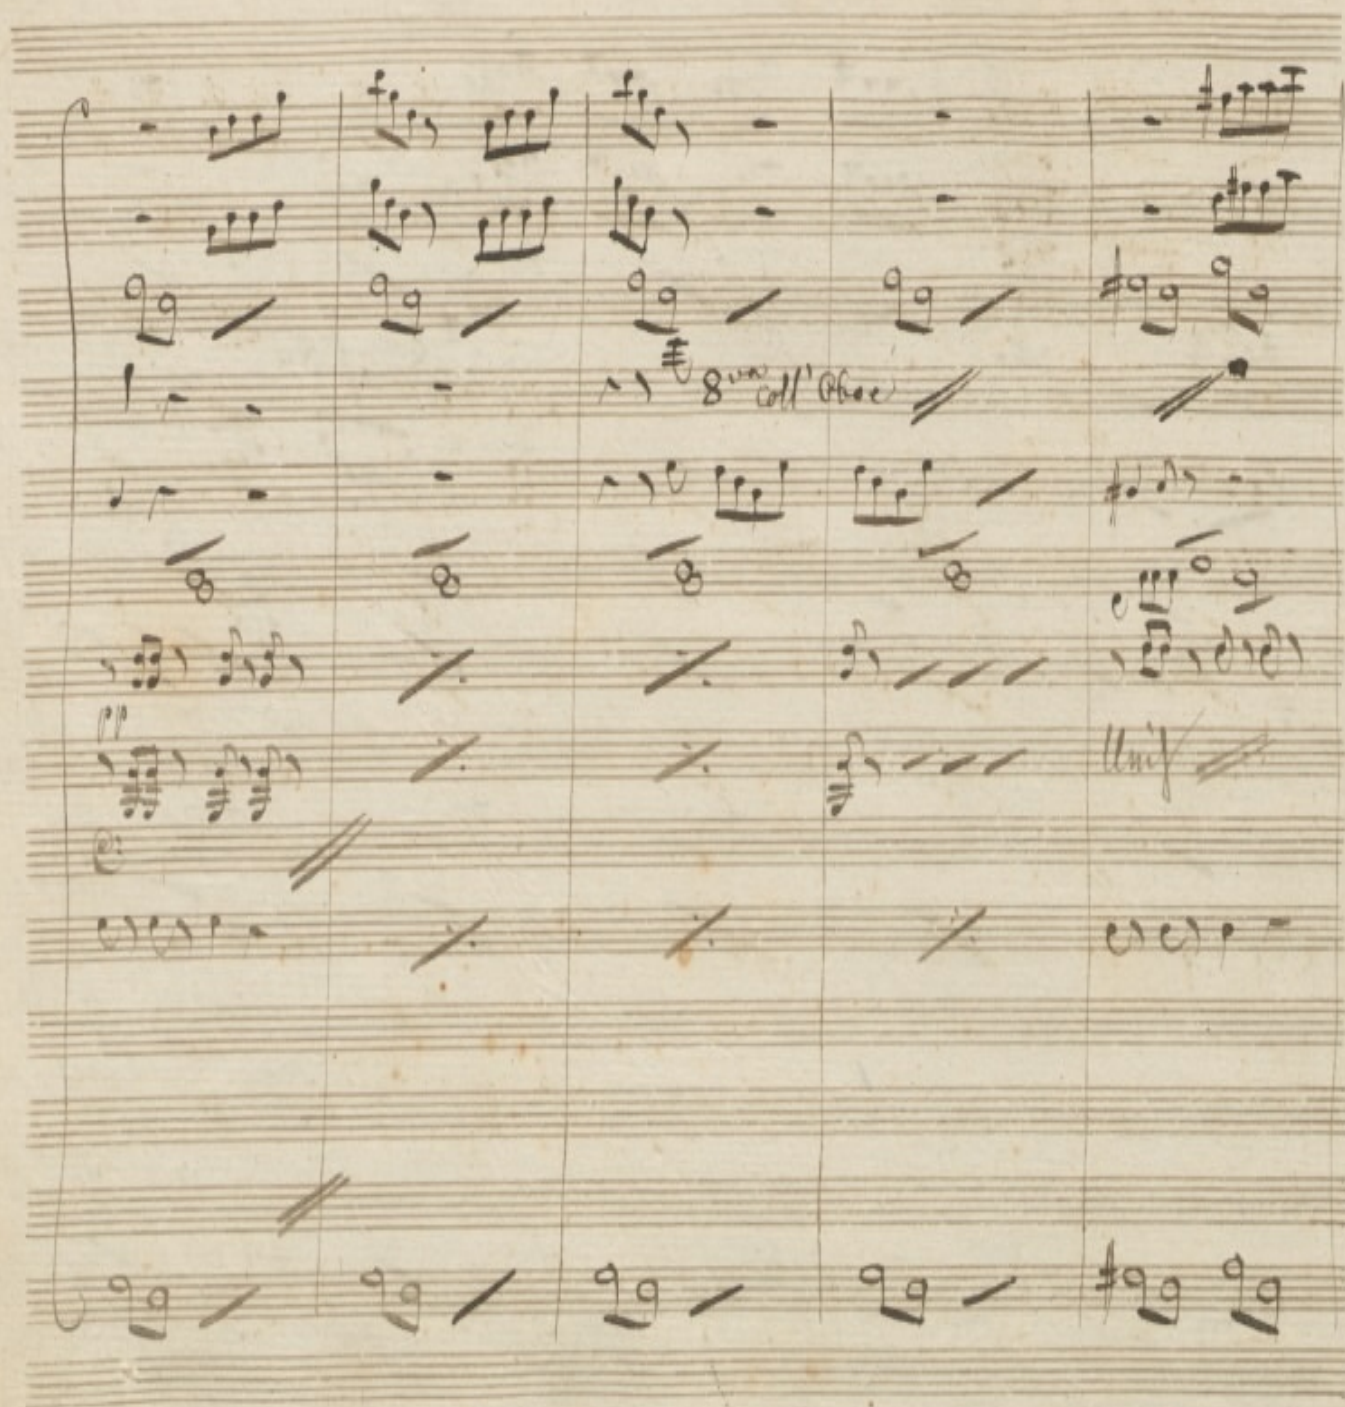 8va coll' Oboe
pp
Unis